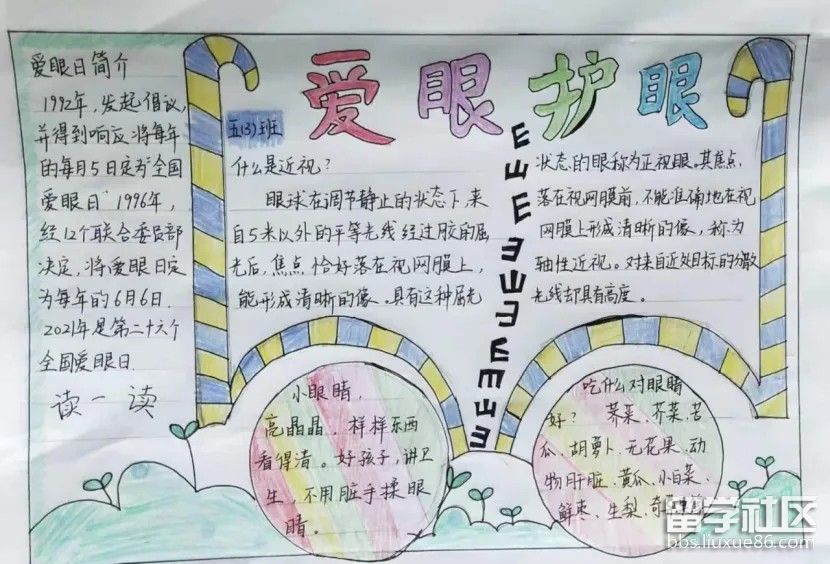 爱眼护眼
爱眼日简介
1992年，发起倡议，
并得到响应将每年
的每月5日定为"全国
爱眼日"1996年，
经12个联合委员部
决定，将爱眼日定
为每年的6月6日.
2021年是第二十六个
全国爱眼日.
读一读
五(3)班
什么是近视？
眼球在调节静止的状态下，来
自5米以外的平等光线经过胶的屈
光后，焦点恰好落在视网膜上，
能形成清晰的像。具有这种屈光
状态的眼称为正视眼。其焦点
落在视网膜前，不能准确地在视
网膜上形成清晰的像，称为
轴性近视。对来自近处目标的分散
光线却具有高度。
小眼睛，
亮晶晶，样样东西
看得清。好孩子，讲卫
生，不用脏手揉眼
睛。
吃什么对眼睛
好？荠菜、芥菜、苦
瓜、胡萝卜、无花果、动
物肝脏、黄瓜、小白菜、
鲜枣、生梨、奇
留学社区
bbs.liuxue86.com